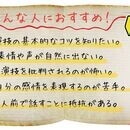 んな人におすすめ！
技の基本的なコツを知りたい。
情や声が自然に出ない。
演技を批判されるのが怖い。
分の感情を表現するのが苦手。
人前で話すことに抵抗がある。